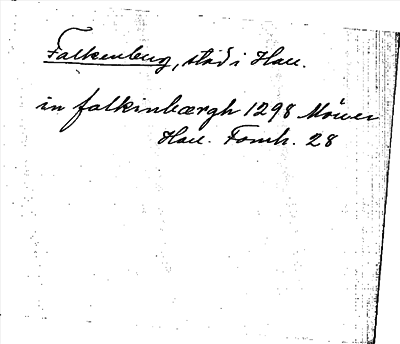 Falkenberg, stad i Hall.
in falkinbærgh 1298 Möller
Hall. Fornh. 28